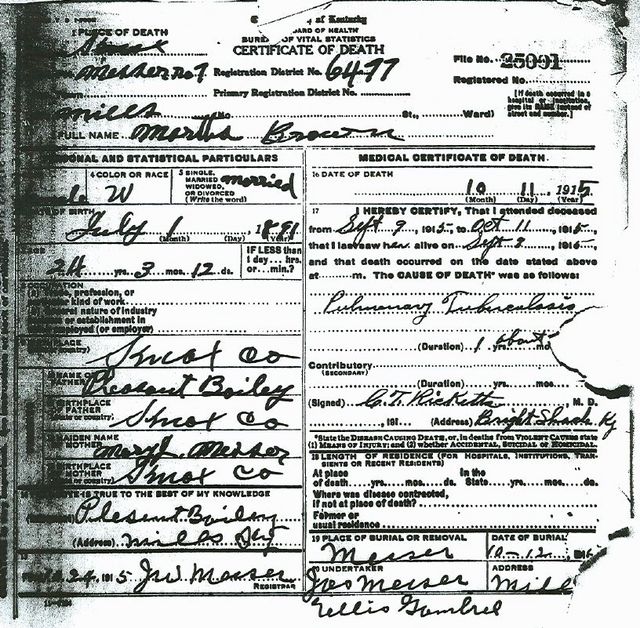 of Kentucky
BOARD OF HEALTH
BUREAU OF VITAL STATISTICS
CERTIFICATE OF DEATH
1 PLACE OF DEATH
Knox
File No. 25091
Messer No. 7 Registration District No. 6477
Registered No.
Primary Registration District No.
[If death occurred in a hospital or institution, give its NAME instead of street and number.]
Mills No. St., Ward)
FULL NAME Martha Brown
PERSONAL AND STATISTICAL PARTICULARS
4 COLOR OR RACE W
5 SINGLE, MARRIED WIDOWED, OR DIVORCED (Write the word) Married
DATE OF BIRTH
July 1, 1891
(Month) (Day) (Year)
AGE
24 yrs. 3 mos. 12 ds.
IF LESS than 1 day... hrs. or... min.?
OCCUPATION
(a) Trade, profession, or kind of work
(b) General nature of industry
business or establishment in
employed (or employer)
BIRTHPLACE
(State or country) Knox Co
NAME OF FATHER Pleasant Bailey
BIRTHPLACE OF FATHER (State or country) Knox Co
MAIDEN NAME OF MOTHER Mary J. Messer
BIRTHPLACE OF MOTHER (State or country) Knox Co
IS TRUE TO THE BEST OF MY KNOWLEDGE
Plesent Bailey
(Address) Mills Ky
24, 1915 J W Messer
REGISTRAR
MEDICAL CERTIFICATE OF DEATH
16 DATE OF DEATH
10 11, 1915
(Month) (Day) (Year)
17 I HEREBY CERTIFY, That I attended deceased
from Sept 9, 1915, to Oct 11, 1915,
that I last saw her alive on Sept 9, 1915,
and that death occurred on the date stated above
at m. The CAUSE OF DEATH* was as follows:
Pulmonary Tuberculosis
(Duration) 1 about yrs. mo
Contributory
(SECONDARY)
(Duration) yrs. mos.
(Signed) C. T. Ricketts M. D.
, 191 (Address) Bright Shade Ky
*State the DISEASE CAUSING DEATH, or, in deaths from VIOLENT CAUSES state
(1) MEANS OF INJURY; and (2) whether ACCIDENTAL, SUICIDAL or HOMICIDAL.
18 LENGTH OF RESIDENCE (FOR HOSPITALS, INSTITUTIONS, TRANSIENTS OR RECENT RESIDENTS)
At place of death yrs. mos. ds. In the State yrs. mos. ds.
Where was disease contracted,
if not at place of death?
Former or
usual residence
19 PLACE OF BURIAL OR REMOVAL
Messer
DATE OF BURIAL
10-12, 1915
20 UNDERTAKER
Joe Messer
ADDRESS
Mill
Gambrel